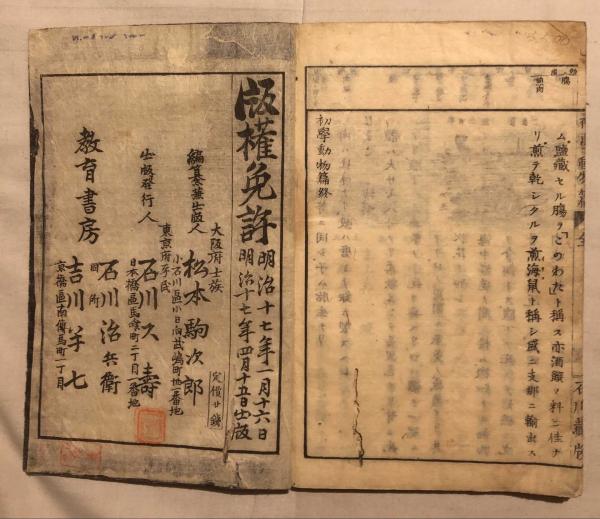 ム鹽藏セル腸ヲ「このわた」ト稱ス亦酒殽ノ料ニ佳ナ
リ煎テ乾シタルヲ煎海鼠ト稱シ盛ニ支那ニ輸出ス
初學動物篇終
版權免許
明治十七年一月十六日
明治十七年四月十五日出版
定價廿錢
編纂兼出版人
大阪府士族
松本駒次郎
小石川區小日向武嶋町地一番地
出版發行人
東京府平民
石川久壽
日本橋區馬喰町二丁目一番地
教育書房
石川治兵衛
同所
吉川半七
京橋區南傳馬町一丁目